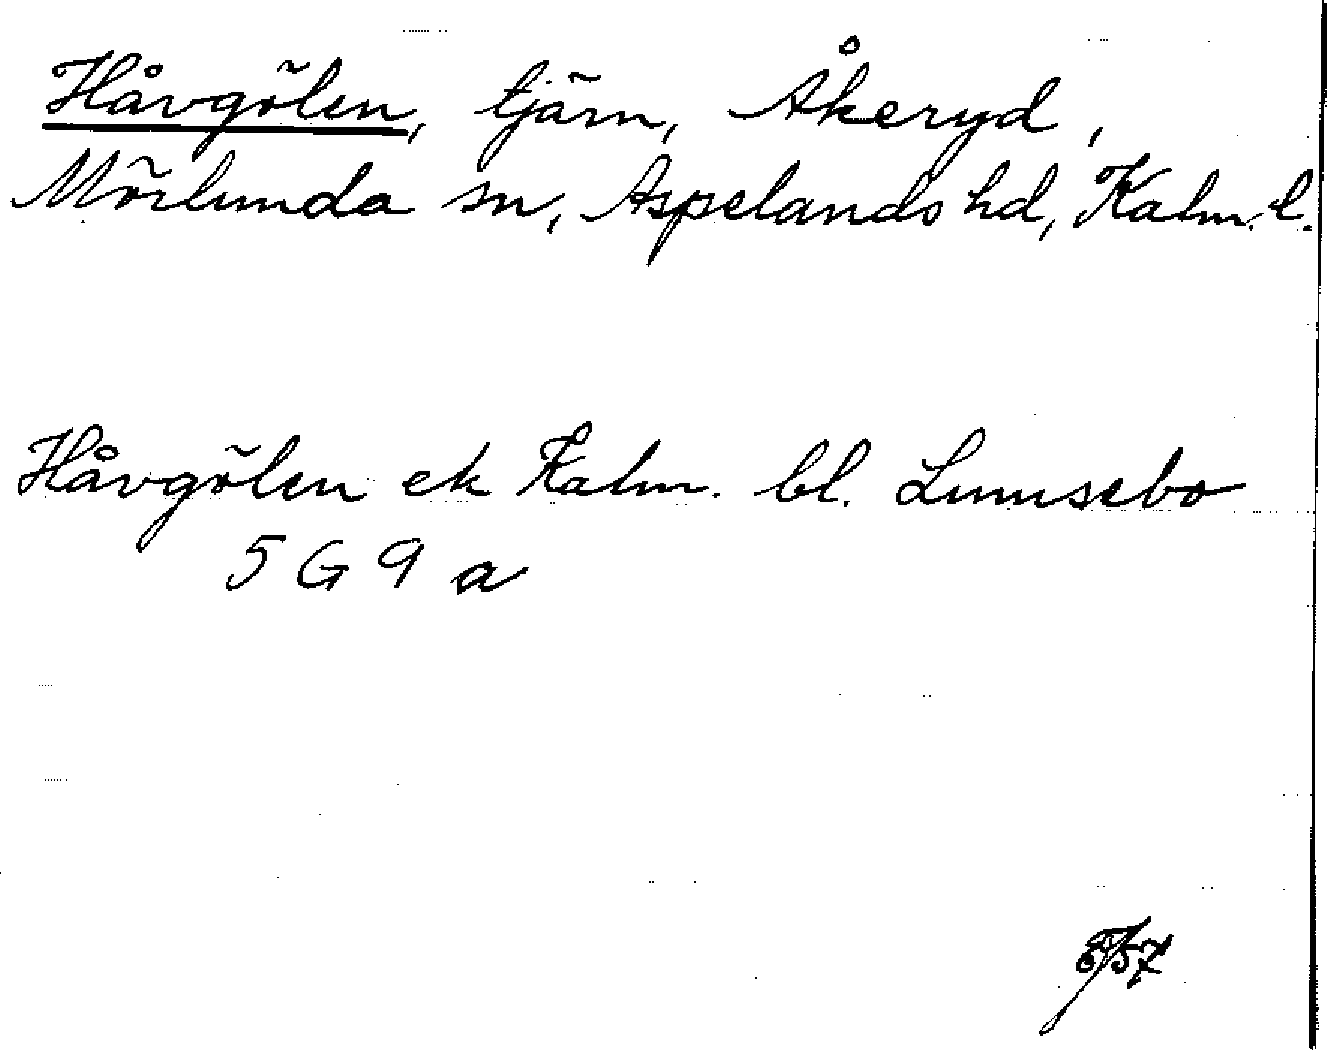 Håvgölen, tjärn, Åkeryd,
Mörlunda sn, Aspelands hd, Kalm. l.
Håvgölen ek Kalm. bl. Lunnsebo
5 G 9 a